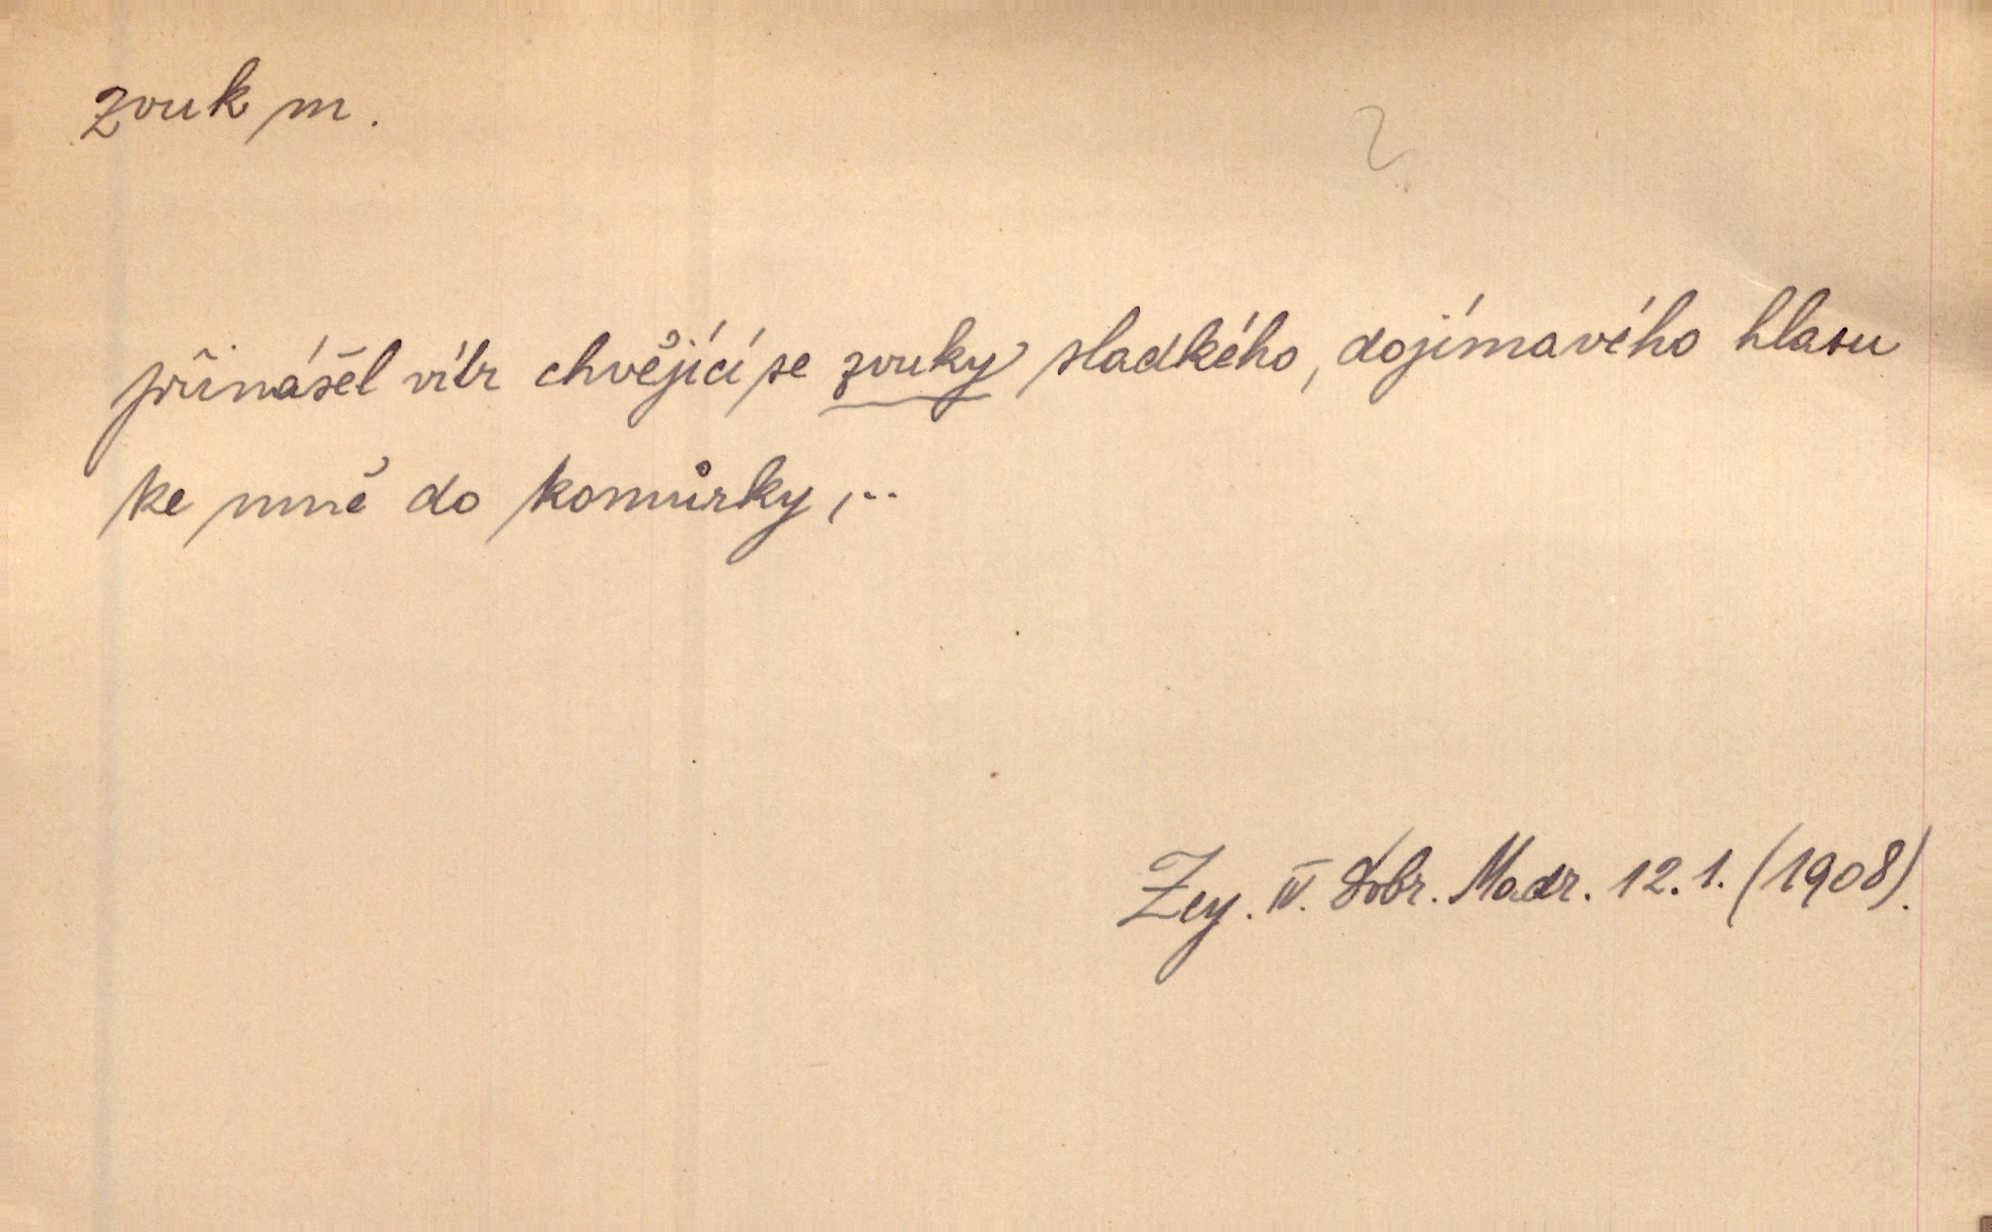 zvuk m.
2
přinášel vítr chvějící se zvuky sladkého, dojímavého hlasu
ke mně do komůrky,..
Zey. IV. Dobr. Madr. 12.1. (1908).